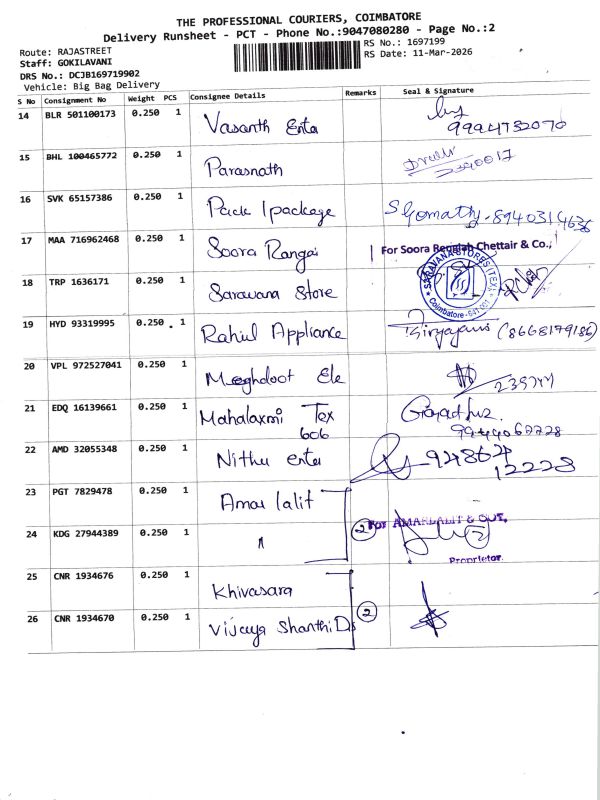 THE PROFESSIONAL COURIERS, COIMBATORE
Delivery Runsheet - PCT - Phone No.:9047080280 - Page No.:2
Route: RAJASTREET
RS No.: 1697199
Staff: GOKILAVANI
RS Date: 11-Mar-2026
DRS No.: DCJB169719902
Vehicle: Big Bag Delivery
S No Consignment No Weight PCS Consignee Details Remarks Seal & Signature
14 BLR 501100173 0.250 1 Vasanth Enta 9994732070
15 BHL 100465772 0.250 1 Parasnath 2390017
16 SVK 65157386 0.250 1 Pack 1 package S Gomathy - 8940314636
17 MAA 716962468 0.250 1 Soora Rangai For Soora Rengiah Chettair & Co.,
18 TRP 1636171 0.250 1 Saravana Store SARAVANA STORES (TEX) Coimbatore - 641 001
19 HYD 93319995 0.250 1 Rahul Appliance (8668179186)
20 VPL 972527041 0.250 1 Meghdoot Ele
21 EDQ 16139661 0.250 1 Mahalaxmi Tex
606 9944062228
22 AMD 32055348 0.250 1 Nithu enta 94864
12228
23 PGT 7829478 0.250 1 Amar lalit
24 KDG 27944389 0.250 1 " 2 For AMARLALIT & OUT,
Proprietor.
25 CNR 1934676 0.250 1 Khivasara
26 CNR 1934670 0.250 1 Vijaya Shanthi Ds 2